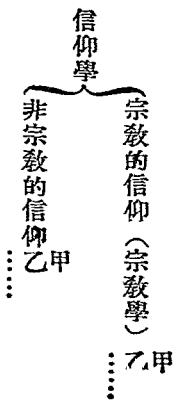 信仰學
宗敎的信仰（宗敎學）
甲
乙……
非宗敎的信仰
甲
乙……